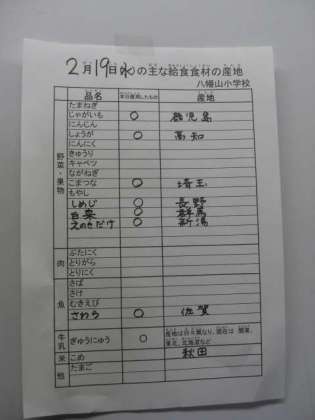 2月19日(水)の主な給食食材の産地
八幡山小学校
品名 本日使用したもの 産地
野菜・果物
たまねぎ
じゃがいも ○ 鹿児島
にんじん
しょうが ○ 高知
にんにく
きゅうり
キャベツ
ながねぎ
こまつな ○ 埼玉
もやし
しめじ ○ 長野
白菜 ○ 群馬
えのきだけ ○ 新潟
肉
ぶたにく
とりがら
とりにく
魚
さば
さけ
むきえび
さわら ○ 佐賀
牛乳 ぎゅうにゅう ○ 産地は日々異なり、現在は 関東、
東北、北海道など
米 こめ 秋田
他 たまご